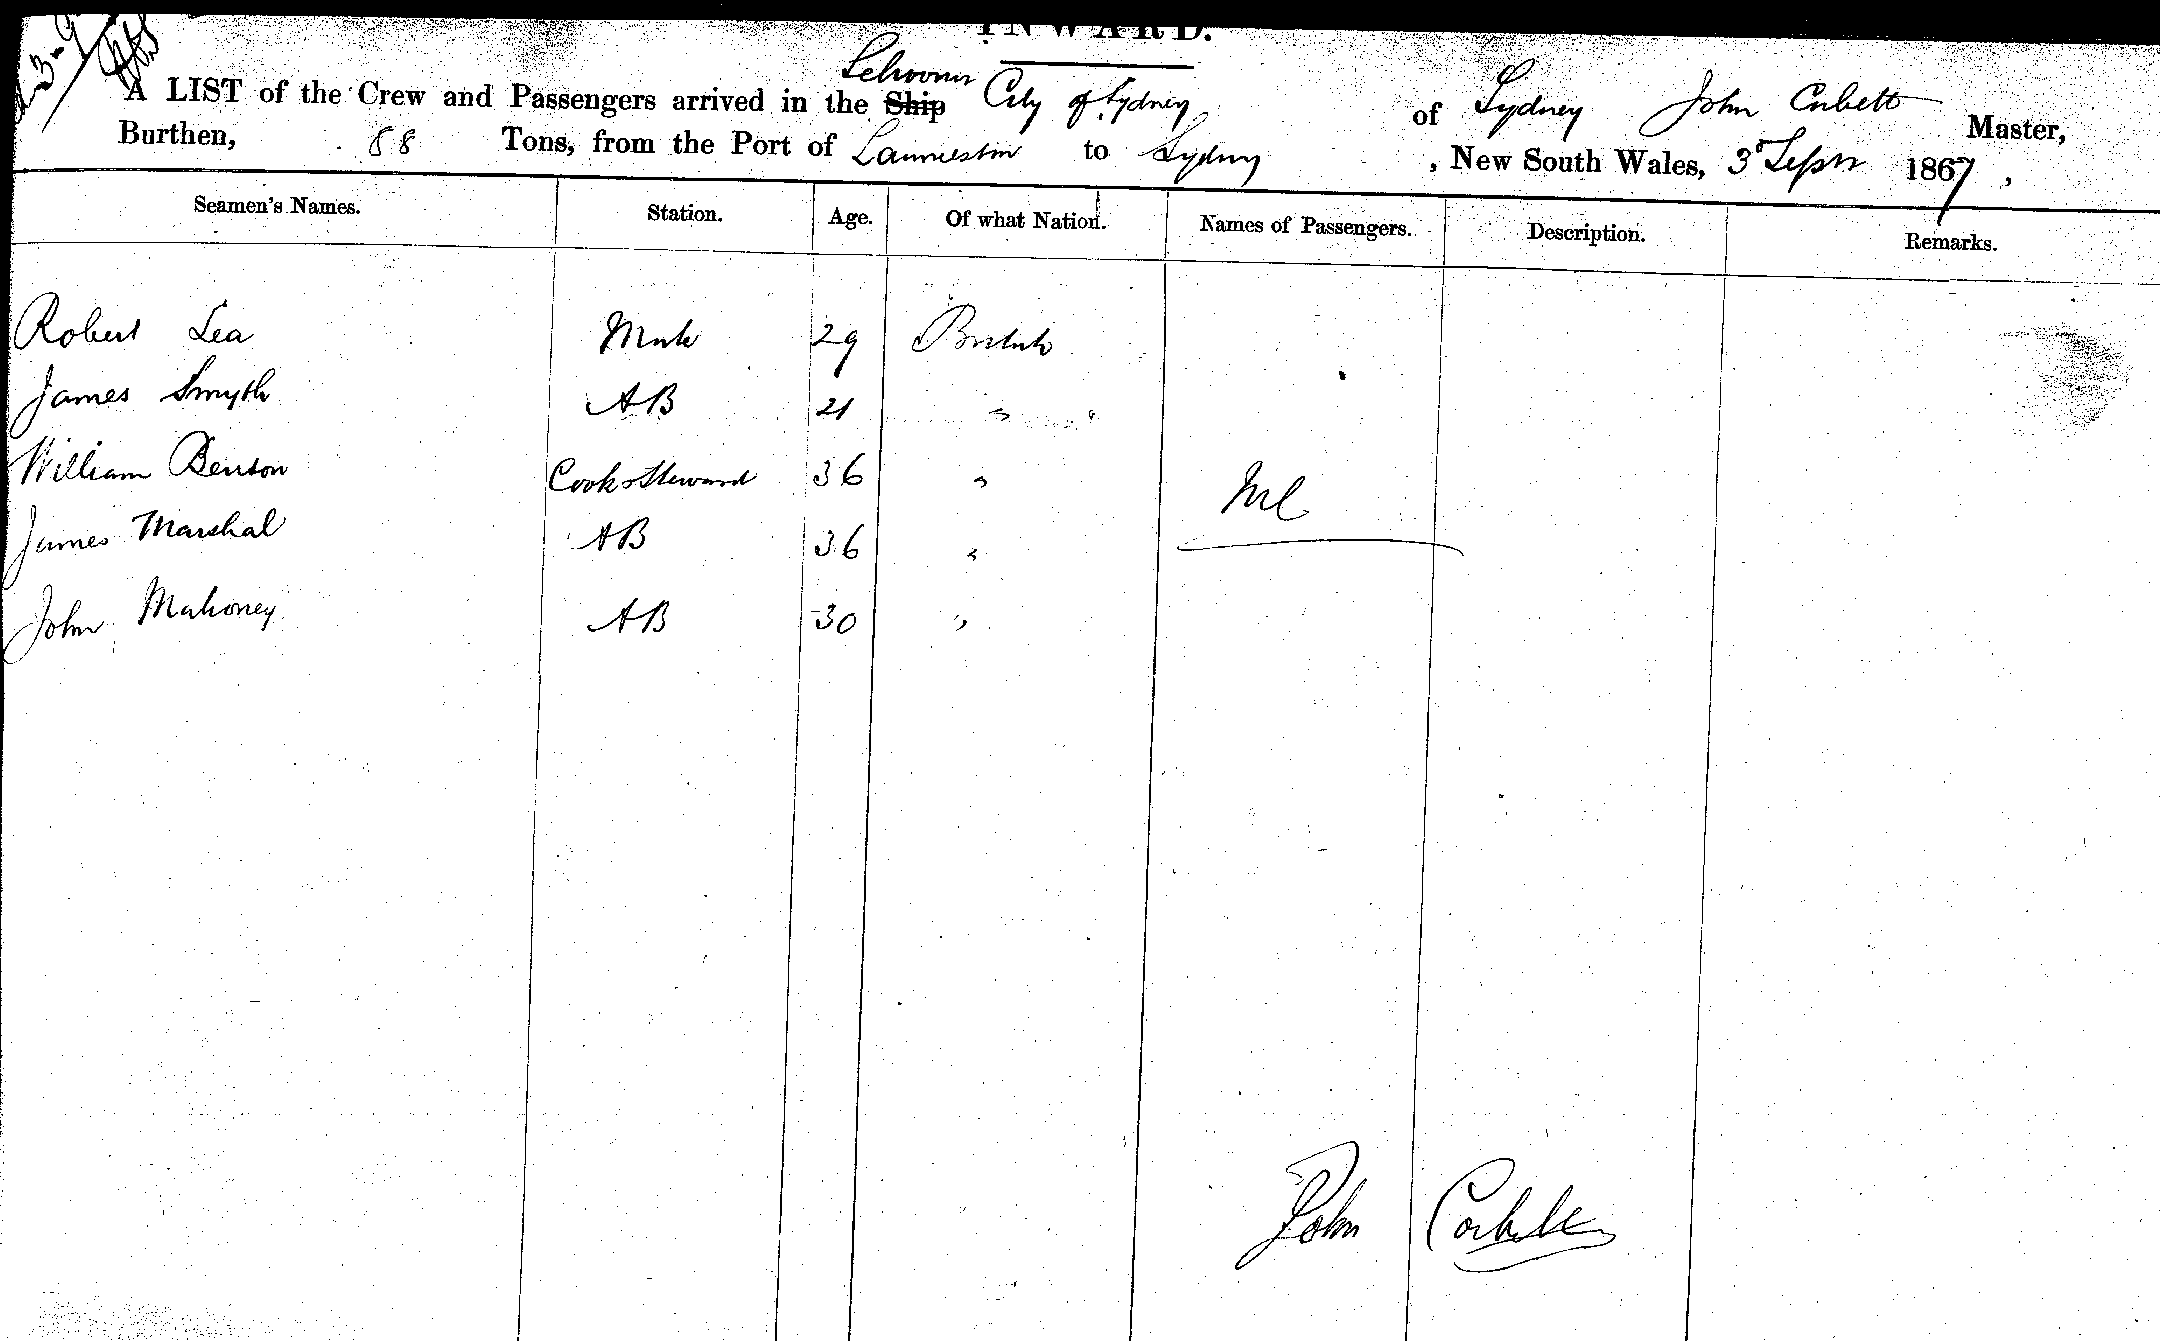 INWARD.
Schooner
A LIST of the Crew and Passengers arrived in the Ship City of Sydney of Sydney John Corbett Master,
Burthen, 88 Tons, from the Port of Launceston to Sydney , New South Wales, 3 Septr 1867 ,
Seamen's Names. Station. Age. Of what Nation. Names of Passengers. Description. Remarks.
Robert Lea Mate 29 British
James Smyth AB 21 " "
William Benson Cook & Steward 36 " Nil
James Marshal AB 36 "
John Mahoney AB 30 "
John Corbett